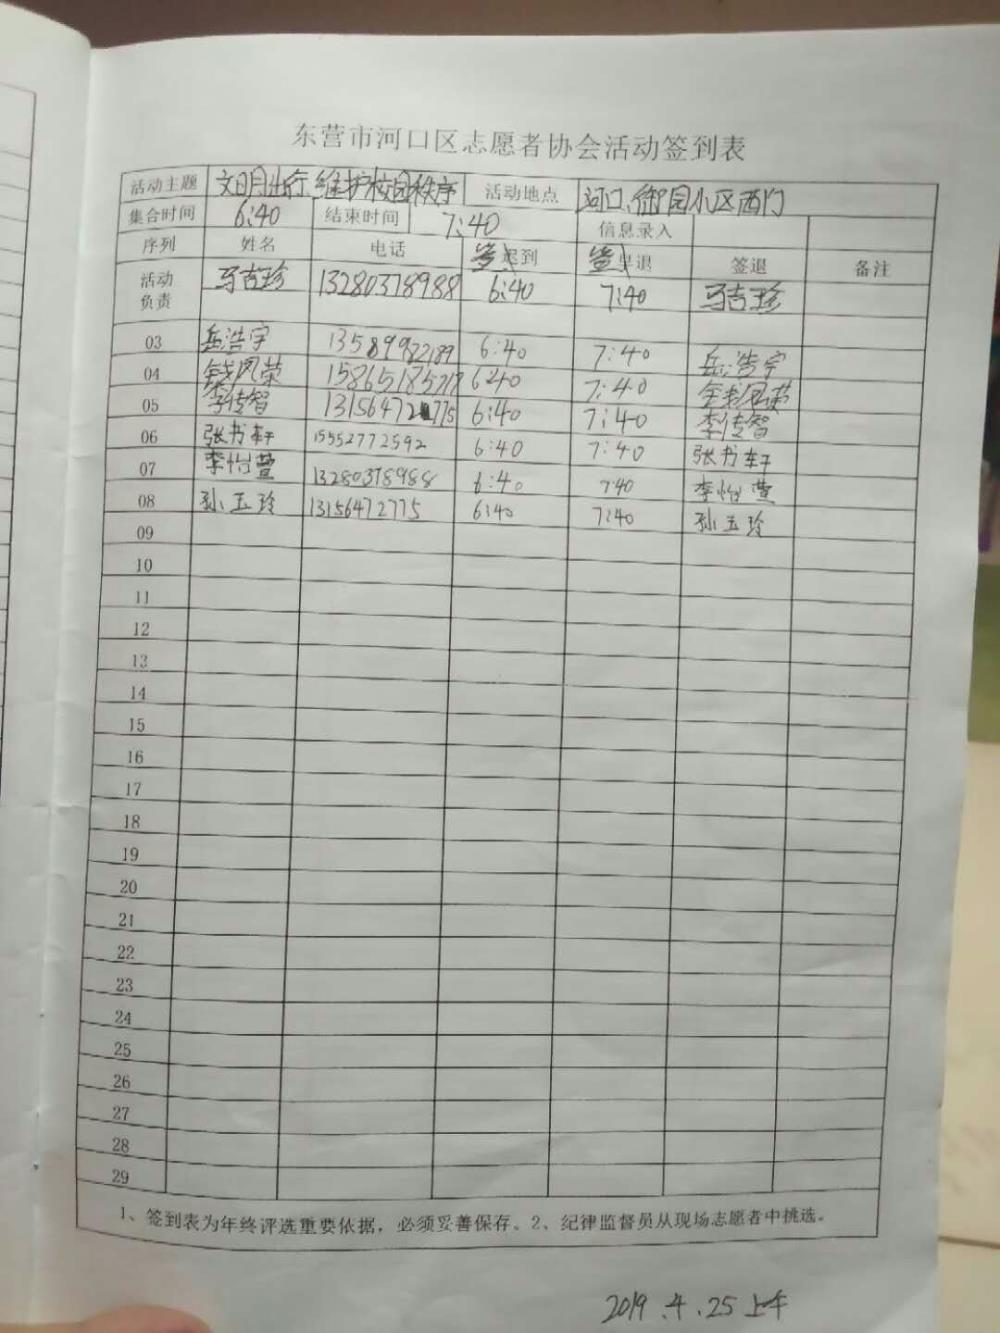 东营市河口区志愿者协会活动签到表
活动主题 文明出行、维护校园秩序 活动地点 河口、御园小区西门
集合时间 6:40 结束时间 7:40 信息录入
序列 姓名 电话 签到 签退 签退 备注
活动负责 马吉珍 13280378988 6:40 7:40 马吉珍
03 岳浩宇 13589982189 6:40 7:40 岳浩宇
04 钱风荣 15865185718 6:40 7:40 钱风荣
05 李传智 13156472775 6:40 7:40 李传智
06 张书轩 15552772592 6:40 7:40 张书轩
07 李怡萱 13280378988 6:40 7:40 李怡萱
08 孙玉玲 13156472775 6:40 7:40 孙玉玲
09
10
11
12
13
14
15
16
17
18
19
20
21
22
23
24
25
26
27
28
29
1、签到表为年终评选重要依据，必须妥善保存。2、纪律监督员从现场志愿者中挑选。
2019.4.25上午